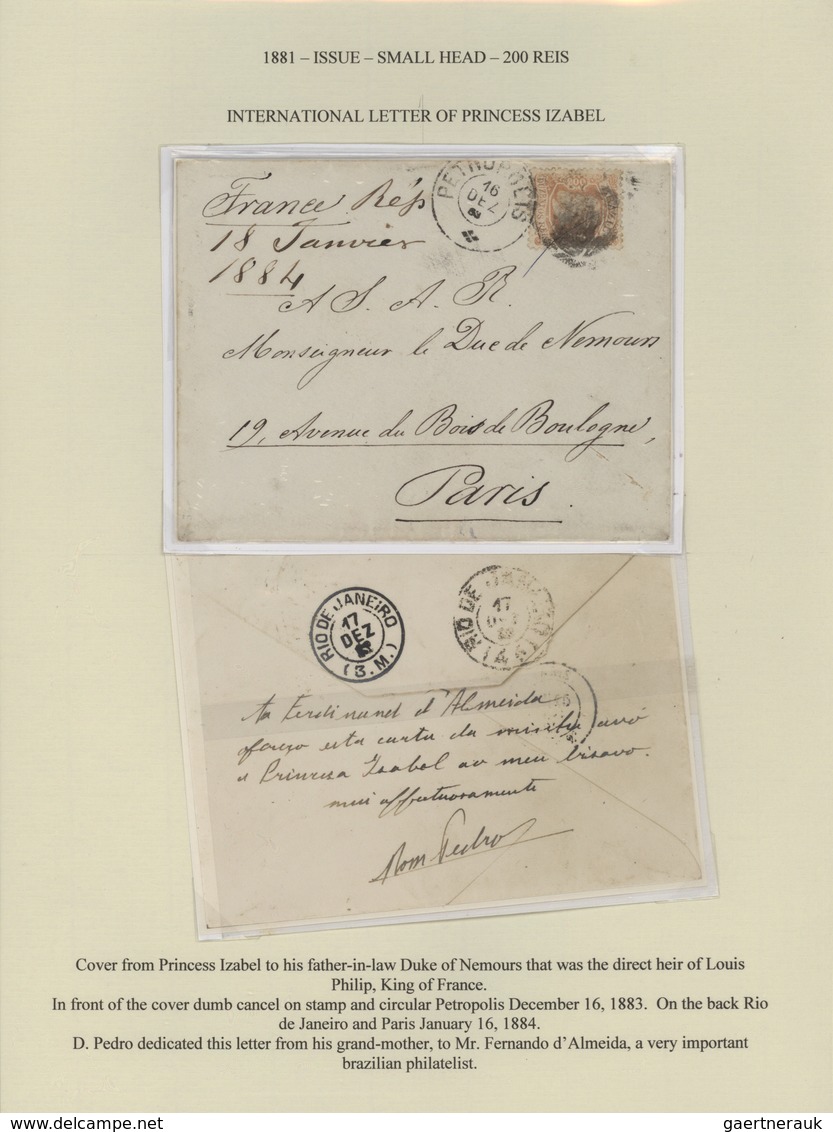 1881 – ISSUE – SMALL HEAD – 200 REIS
INTERNATIONAL LETTER OF PRINCESS IZABEL
PETROPOLIS
16
DEZ
France Rép
18 Janvier
1884
A S. A. R.
Monseigneur le Duc de Nemours
19, Avenue du Bois de Boulogne,
Paris.
RIO DE JANEIRO
17
DEZ
(3.M.)
RIO DE JANEIRO
17
Ao Ferdinand d'Almeida
esta carta da minha avó
a Princesa Isabel ao meu bisavo.
mui affectuosamente
Dom Pedro
Cover from Princess Izabel to his father-in-law Duke of Nemours that was the direct heir of Louis
Philip, King of France.
In front of the cover dumb cancel on stamp and circular Petropolis December 16, 1883. On the back Rio
de Janeiro and Paris January 16, 1884.
D. Pedro dedicated this letter from his grand-mother, to Mr. Fernando d'Almeida, a very important
brazilian philatelist.
gaertnerauk